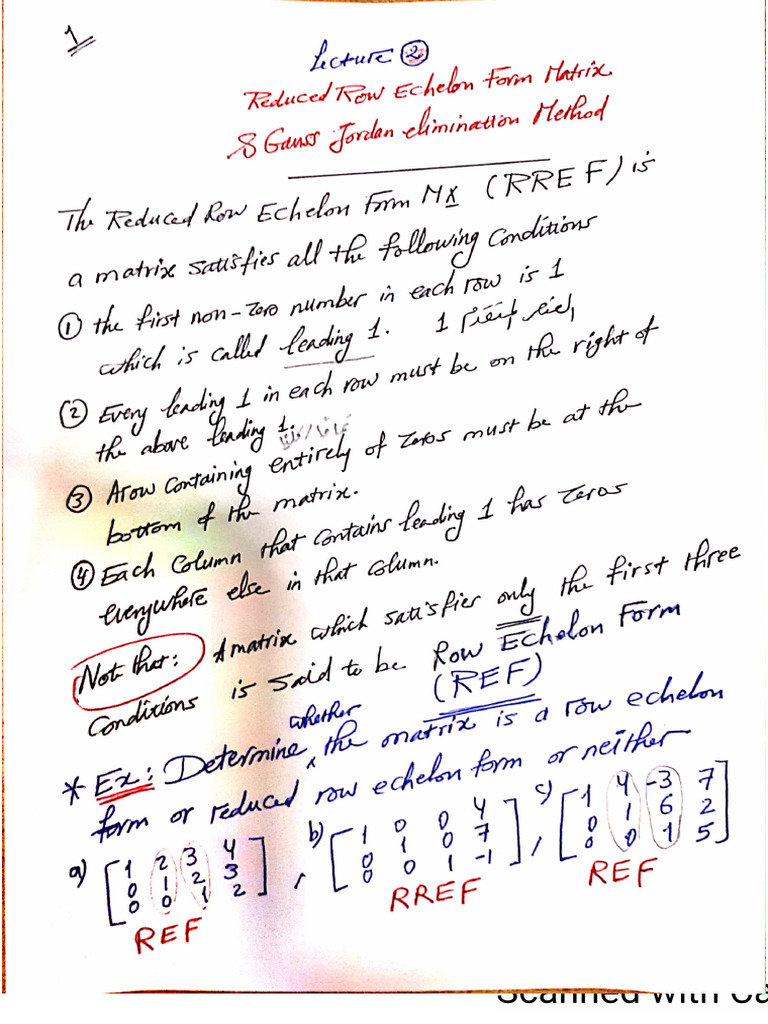 1
Lecture ②
Reduced Row Echelon Form Matrix
& Gauss Jordan elimination Method
The Reduced Row Echelon Form Mx (RREF) is
a matrix satisfies all the following Conditions
① the first non-zero number in each row is 1
which is called leading 1. 1
② Every leading 1 in each row must be on the right of
the above leading 1.
③ A row Containing entirely of zeros must be at the
bottom of the matrix.
④ Each Column that contains leading 1 has zeros
everywhere else in that column.
Not that: A matrix which satisfies only the first three
Conditions is said to be Row Echelon Form
(REF)
* Ex: Determine whether the matrix is a row echelon
form or reduced row echelon form or neither
a) [1 2 3 4
0 1 2 3
0 0 1 2], b) [1 0 0 4
0 1 0 7
0 0 1 -1], c) [1 4 -3 7
0 1 6 2
0 0 1 5]
REF RREF REF
Scanned with Ca